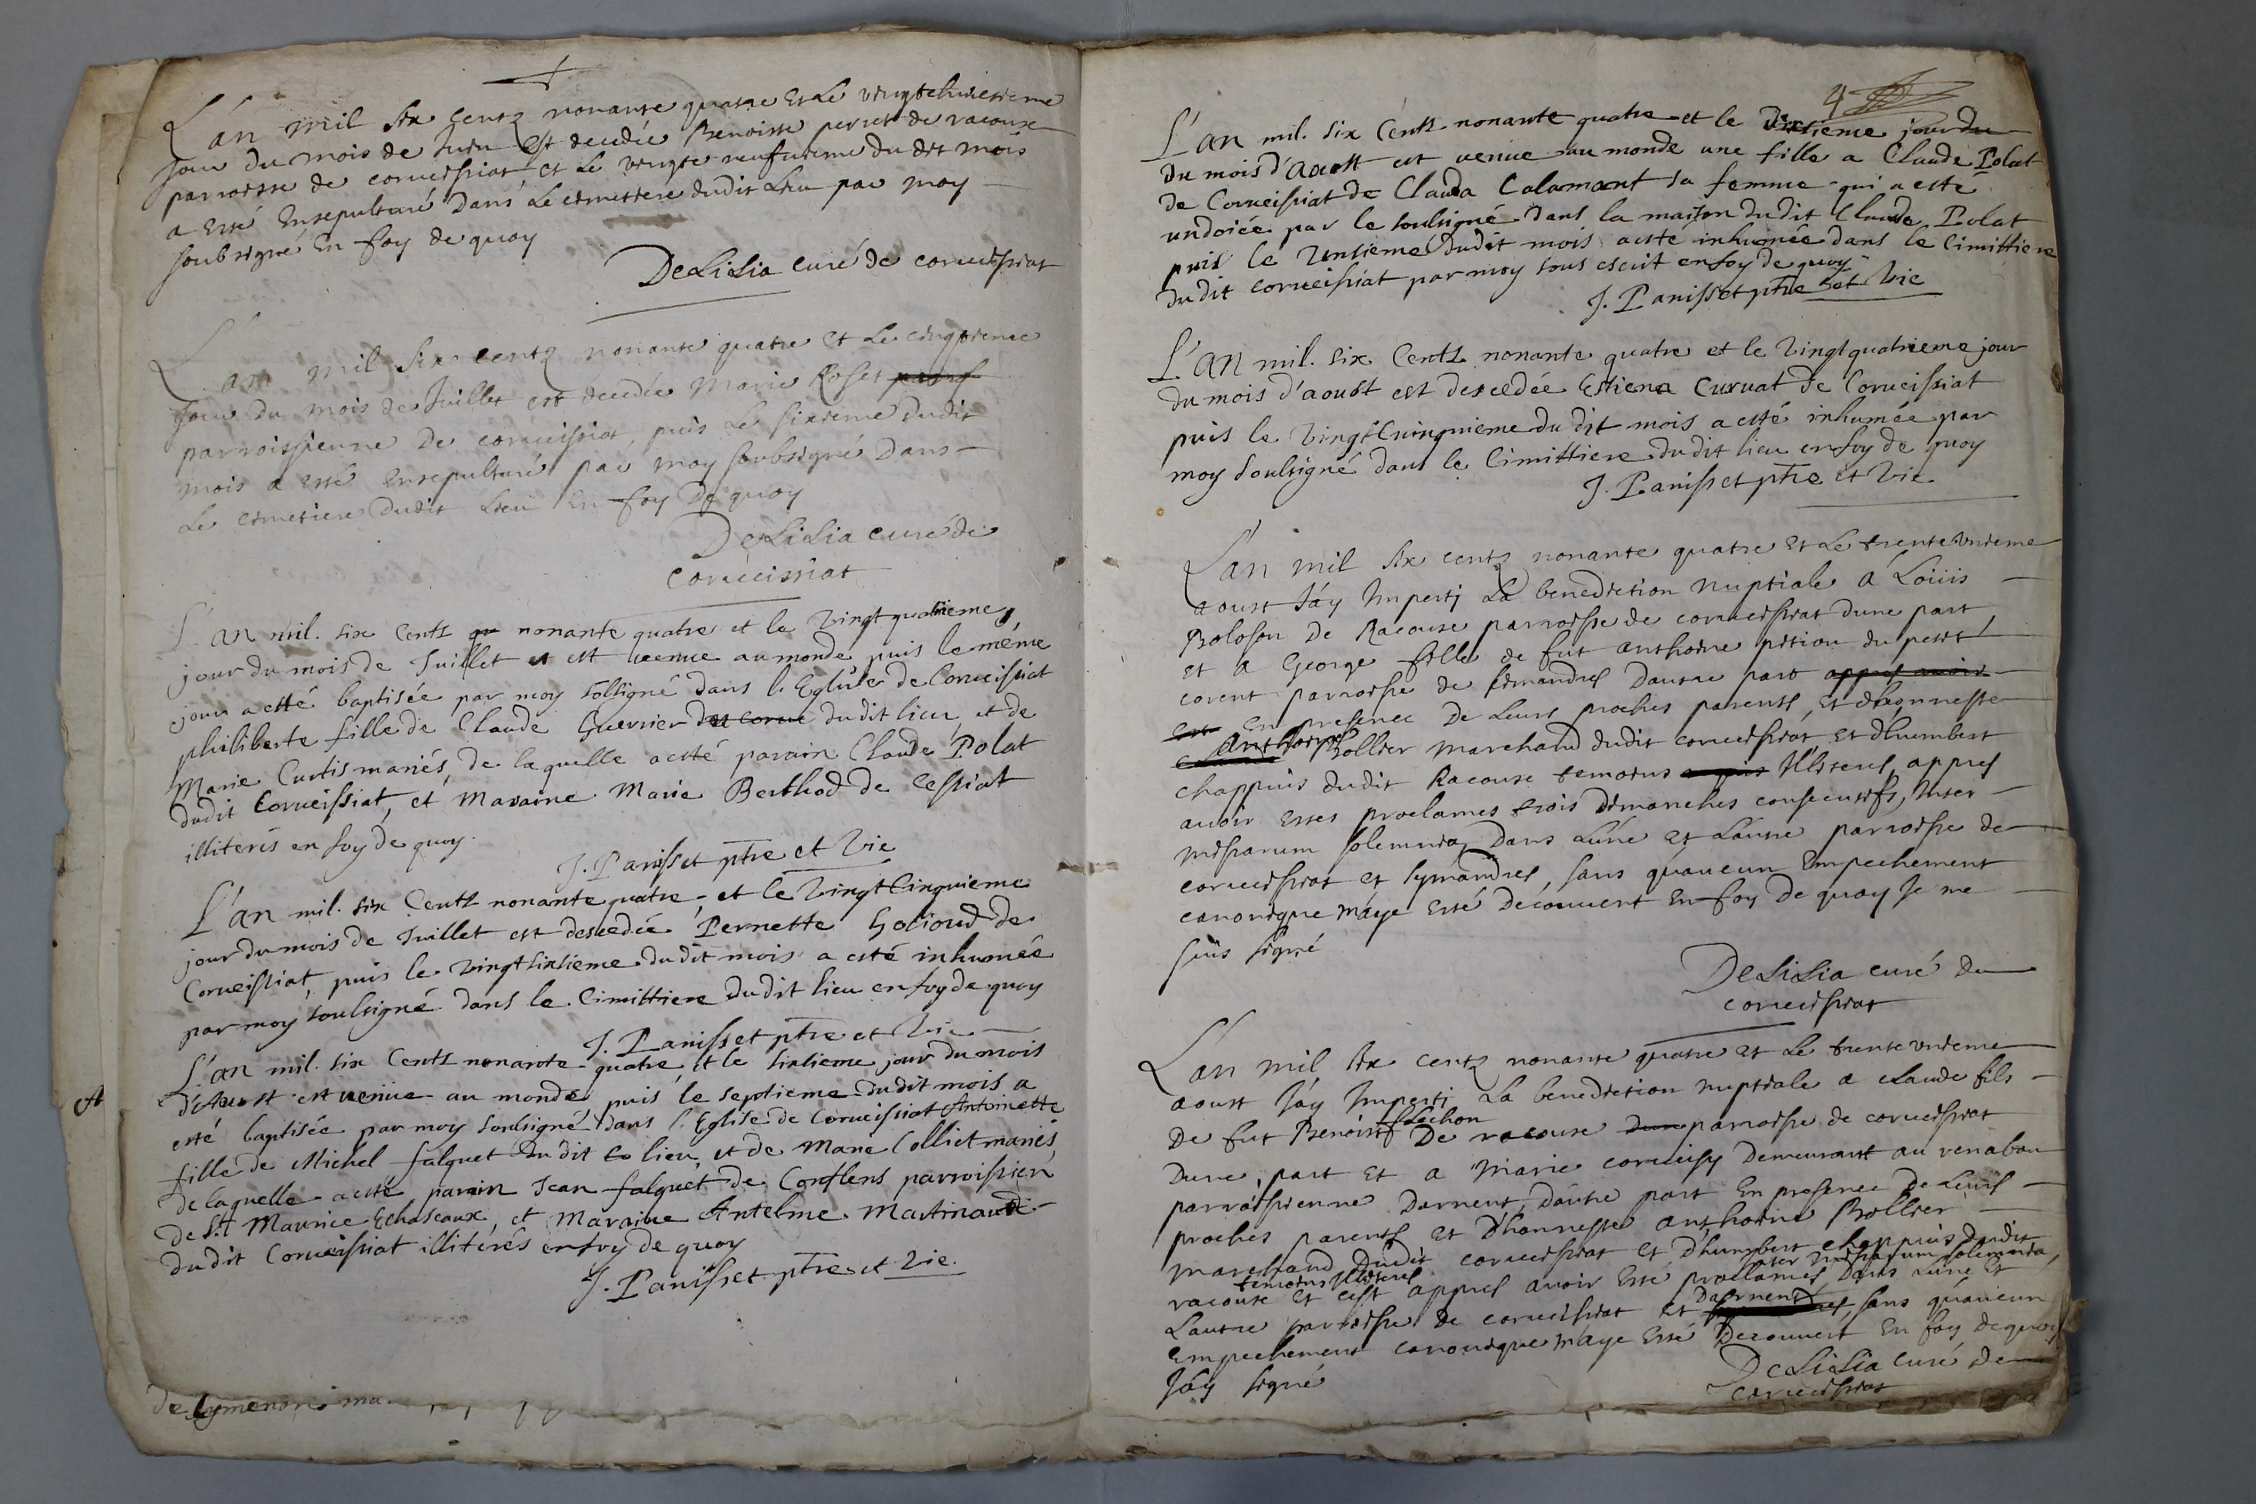 L'an mil six centz nonante quatre et le vingtehuictieme
jour du mois de Juin est decedée Benoiste perret de racouse
parroisse de corveissiat et le vingte neufvieme du dit mois
a esté ensepulturé dans le cimettiere dudit Lieu par moy
soubsigné En foy de quoy
DeLiLia curé de corveissiat
L'an mil six centz nonante quatre et Le cinqieme
jour du mois de Juillet est decedée Marie Roset
parroissienne de corveissiat, puis Le sixieme dudit
mois a esté ensepulturé par moy soubsigné Dans
Le cimetiere dudit Lieu En foy De quoy
DeLiLia curé de
corveissiat
L'an mil. six Cents qu nonante quatre et le vingt quatrieme
jour du mois de Juillet et est venue au monde puis le même
jour a esté baptisée par moy solsigné dans l'Eglise de Corveissiat
philiberte fille de Claude Guerrier dudit lieu et de
Marie Curtis mariés, de laquelle a esté parain Claude Polat
dudit Corveissiat, et Maraine Marie Berthod de Cessiat
illiterés en foy de quoy
J. Panisset ptre et Vic
L'an mil. six Cents nonante quatre, et le vingt Cinquieme
jour du mois de Juillet est descedée Pernette Golioud de
Corveissiat, puis le vingt sixieme du dit mois a esté inhumée
par moy soulsigné dans le Cimittiere du dit lieu en foy de quoy
J. Panisset ptre et Vic
L'an mil. six Cents nonante quatre, et le sixieme jour du mois
d'Auost est venüe au monde puis le septieme du dit mois a
esté baptisée par moy soulsigné dans l'Eglise de Corveissiat Antoinette
fille de Michel falquet du dit Co lieu, et de Marie Colliet mariés,
de laquelle a esté parain Jean falquet de Conflens parroissien
de St Maurice Echaseaux, et Maraine Antelme Martinaud
du dit Corveissiat illitérés en foy de quoy
J. Panisset ptre et Vic.
4
L'an mil. six Cents nonante quatre et le dixieme jour du
du mois d'Aoust est venue au monde une fille a Claude Polat
de Corveissiat de Clauda Calamant sa femme qui a esté
undoiée par le soulsigné dans la maison du dit Claude Polat
puis le unsieme du dit mois a esté inhumée dans le Cimittiere
du dit corveissiat par moy sous escrit en foy de quoy
J. Panisset ptre et Vic
L'an mil. six Cents nonante quatre et le vingt quatrieme jour
du mois d'aoust est descedée Estiena Curvat de Corveissiat
puis le vingt Cuinquieme du dit mois a esté inhumée par
moy soulsigné dans le Cimittiere du dit lieu en foy de quoy
J. Panisset ptre et Vic
L'an mil six centz nonante quatre et Le trente unieme
aoust J'ay Imperti La benediction nuptiale a Loüis
Boloson De Racouse parroisse de corveissiat dune part,
et a George fille de fut anthoine pition du petit
corent parroisse de simandres dautre part appres avoir
est en presence De Leurs proches parents, et d'honneste
Anthoine Bollier marchand dudit corveissiat et d'humbert
chappuis dudit Racouse temoins Illiterés, appres
avoir estes proclames trois dimanches consecutifs, Inter
missarum solemnia, Dans Lúne et Láutre parroisse de
corveissiat et symandres, sans quáucun Empechement
canonique m'aye esté Decouvert en foy de quoy Je me
suis signé
DeLiLia curé de
corveissiat
L'an mil six centz nonante quatre et Le trente unieme
aoust J'áy Imperti La benediction nuptiale a claude fils
De fut Benoist flochon De racouse parroisse de corveissiat
Dune, part et a Marie corveisy Demeurant au
parroissienne Darnent, dáutre part En presence De Leurs
proches parents et D'honneste anthoine Bollier
marchand Dudit corveissiat et D'humbert chappuis Dudit
racouse temoins Illiterés et cest appres avoir Esté proclames Inter missarum solemnia, Dans Lúne et
Láutre parroisse De corveissiat et Darnent sans quáucun
Empechement canonique m'aye Esté Decouvert En foy de quoy
J'áy signé
DeLiLia curé De
corveissiat